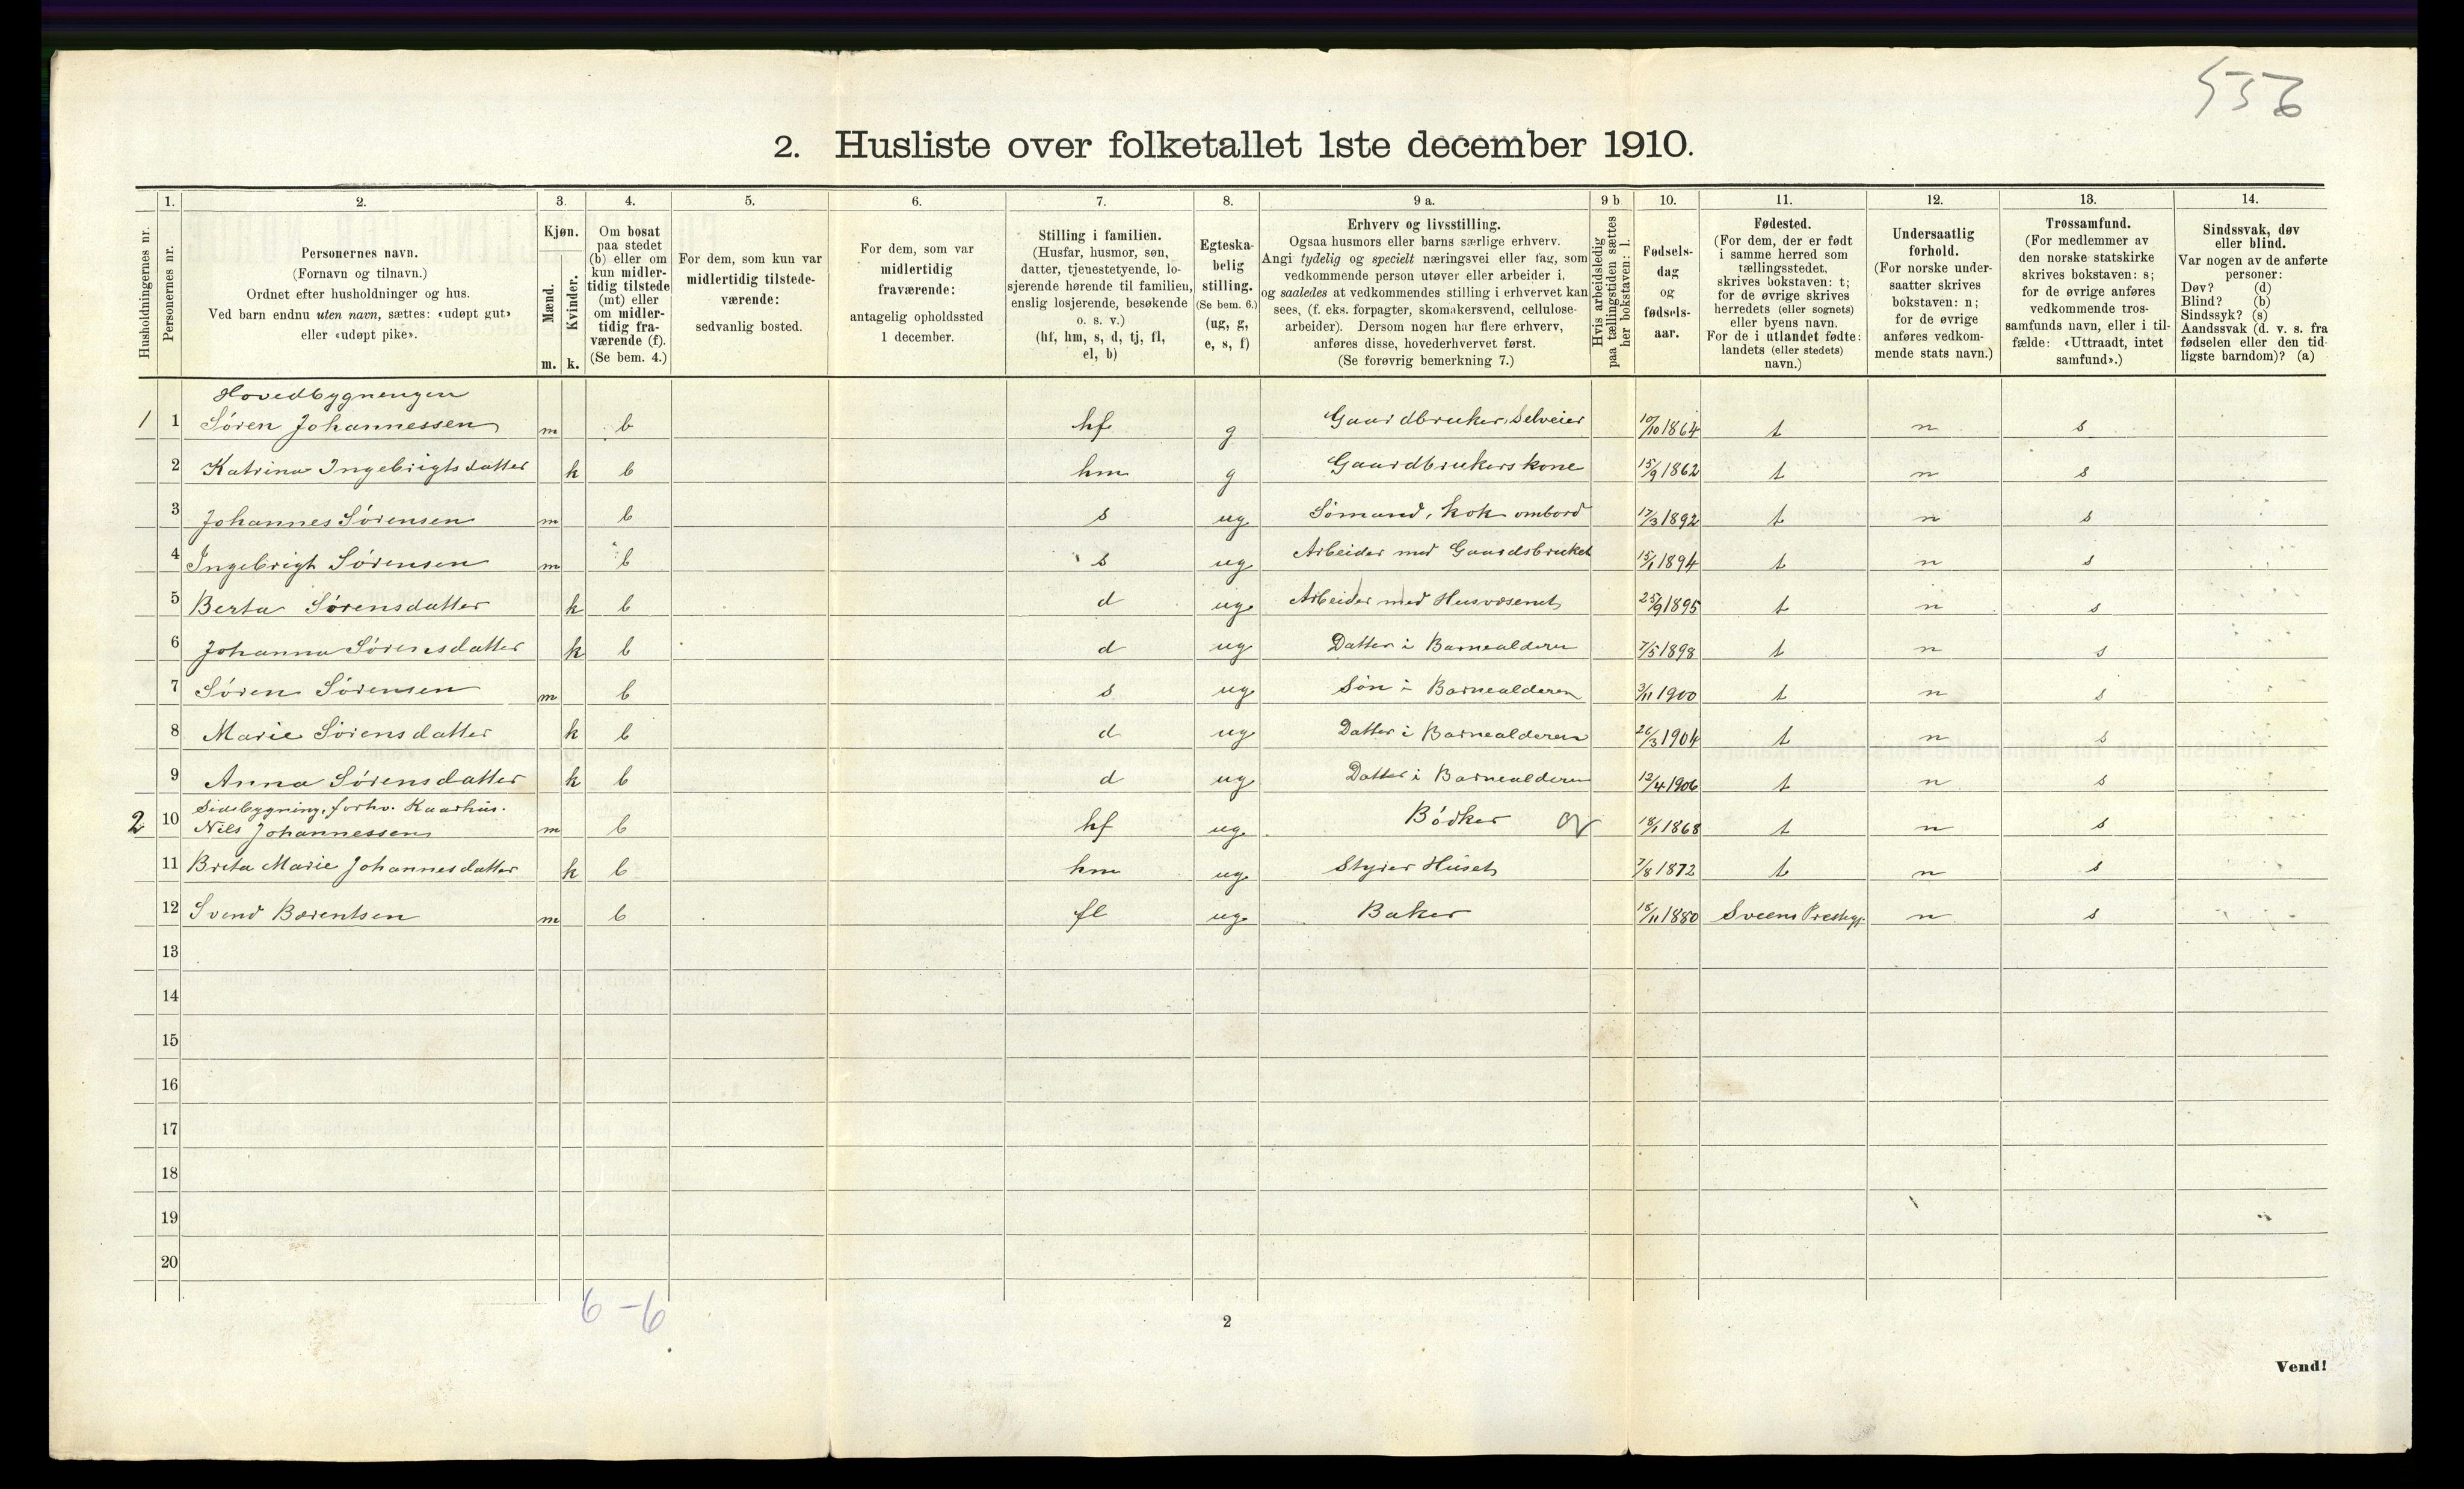 536
2. Husliste over folketallet 1ste december 1910.
1. 2. 3. 4. 5. 6. 7. 8. 9 a. 9 b 10. 11. 12. 13. 14.
Husholdningernes nr.
Personernes nr.
Personernes navn.
(Fornavn og tilnavn.)
Ordnet efter husholdninger og hus.
Ved barn endnu uten navn, sættes: «udøpt gut»
eller «udøpt pike».
Kjøn.
Mænd.
Kvinder.
m. k.
Om bosat
paa stedet
(b) eller om
kun midler-
tidig tilstede
(mt) eller
om midler-
tidig fra-
værende (f).
(Se bem. 4.)
For dem, som kun var
midlertidig tilstede-
værende:
sedvanlig bosted.
For dem, som var
midlertidig
fraværende:
antagelig opholdssted
1 december.
Stilling i familien.
(Husfar, husmor, søn,
datter, tjenestetyende, lo-
sjerende hørende til familien,
enslig losjerende, besøkende
o. s. v.)
(hf, hm, s, d, tj, fl,
el, b)
Egteska-
belig
stilling.
(Se bem. 6.)
(ug, g,
e, s, f)
Erhverv og livsstilling.
Ogsaa husmors eller barns særlige erhverv.
Angi tydelig og specielt næringsvei eller fag, som
vedkommende person utøver eller arbeider i,
og saaledes at vedkommendes stilling i erhvervet kan
sees, (f. eks. forpagter, skomakersvend, cellulose-
arbeider). Dersom nogen har flere erhverv,
anføres disse, hovederhvervet først.
(Se forøvrig bemerkning 7.)
Hvis arbeidsledig
paa tællingstiden sættes
her bokstaven: l.
Fødsels-
dag
og
fødsels-
aar.
Fødested.
(For dem, der er født
i samme herred som
tællingsstedet,
skrives bokstaven: t;
for de øvrige skrives
herredets (eller sognets)
eller byens navn.
For de i utlandet fødte:
landets (eller stedets)
navn.)
Undersaatlig
forhold.
(For norske under-
saatter skrives
bokstaven: n;
for de øvrige
anføres vedkom-
mende stats navn.)
Trossamfund.
(For medlemmer av
den norske statskirke
skrives bokstaven: s;
for de øvrige anføres
vedkommende tros-
samfunds navn, eller i til-
fælde: «Uttraadt, intet
samfund».)
Sindssvak, døv
eller blind.
Var nogen av de anførte
personer:
Døv? (d)
Blind? (b)
Sindssyk? (s)
Aandssvak (d. v. s. fra
fødselen eller den tid-
ligste barndom)? (a)
Hovedbygnengen
1 1 Søren Johannessen m b hf g Gaardbruker, Selveier 10/10 1864 t n s
2 Katrina Ingebrigtsdatter k b hm g Gaardbrukerskone 15/9 1862 t n s
3 Johannes Sørensen m b s ug Sømand, kok ombord 17/3 1892 t n s
4 Ingebrigt Sørensen m b s ug Arbeider med Gaardsbruket 15/1 1894 t n s
5 Berta Sørensdatter k b d ug Arbeider med Husvæsenet 25/9 1895 t n s
6 Johanna Sørensdatter k b d ug Datter i Barnealderen 7/5 1898 t n s
7 Søren Sørensen m b s ug Søn i Barnealderen 3/11 1900 t n s
8 Marie Sørensdatter k b d ug Datter i Barnealderen 26/3 1904 t n s
9 Anna Sørensdatter k b d ug Datter i Barnealderen 12/4 1906 t n s
Sidebygning, forhv. Kaarhus.
2 10 Nils Johannessen m b hf ug Bødker 18/1 1868 t n s
11 Breta Marie Johannesdatter k b hm ug Styrer Huset 7/8 1872 t n s
12 Svend Bærentsen m b fl ug Baker 18/11 1880 Sveens Prestegj. n s
13
14
15
16
17
18
19
20
6-6
2
Vend!